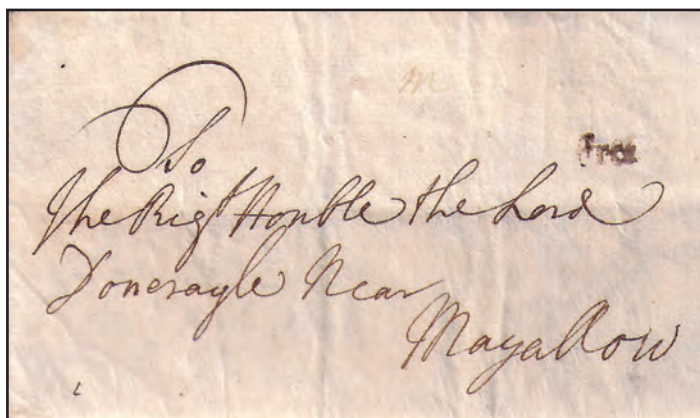 m
free
To
The Rigt Honble the Lord
Doneragle Near
Mayallow